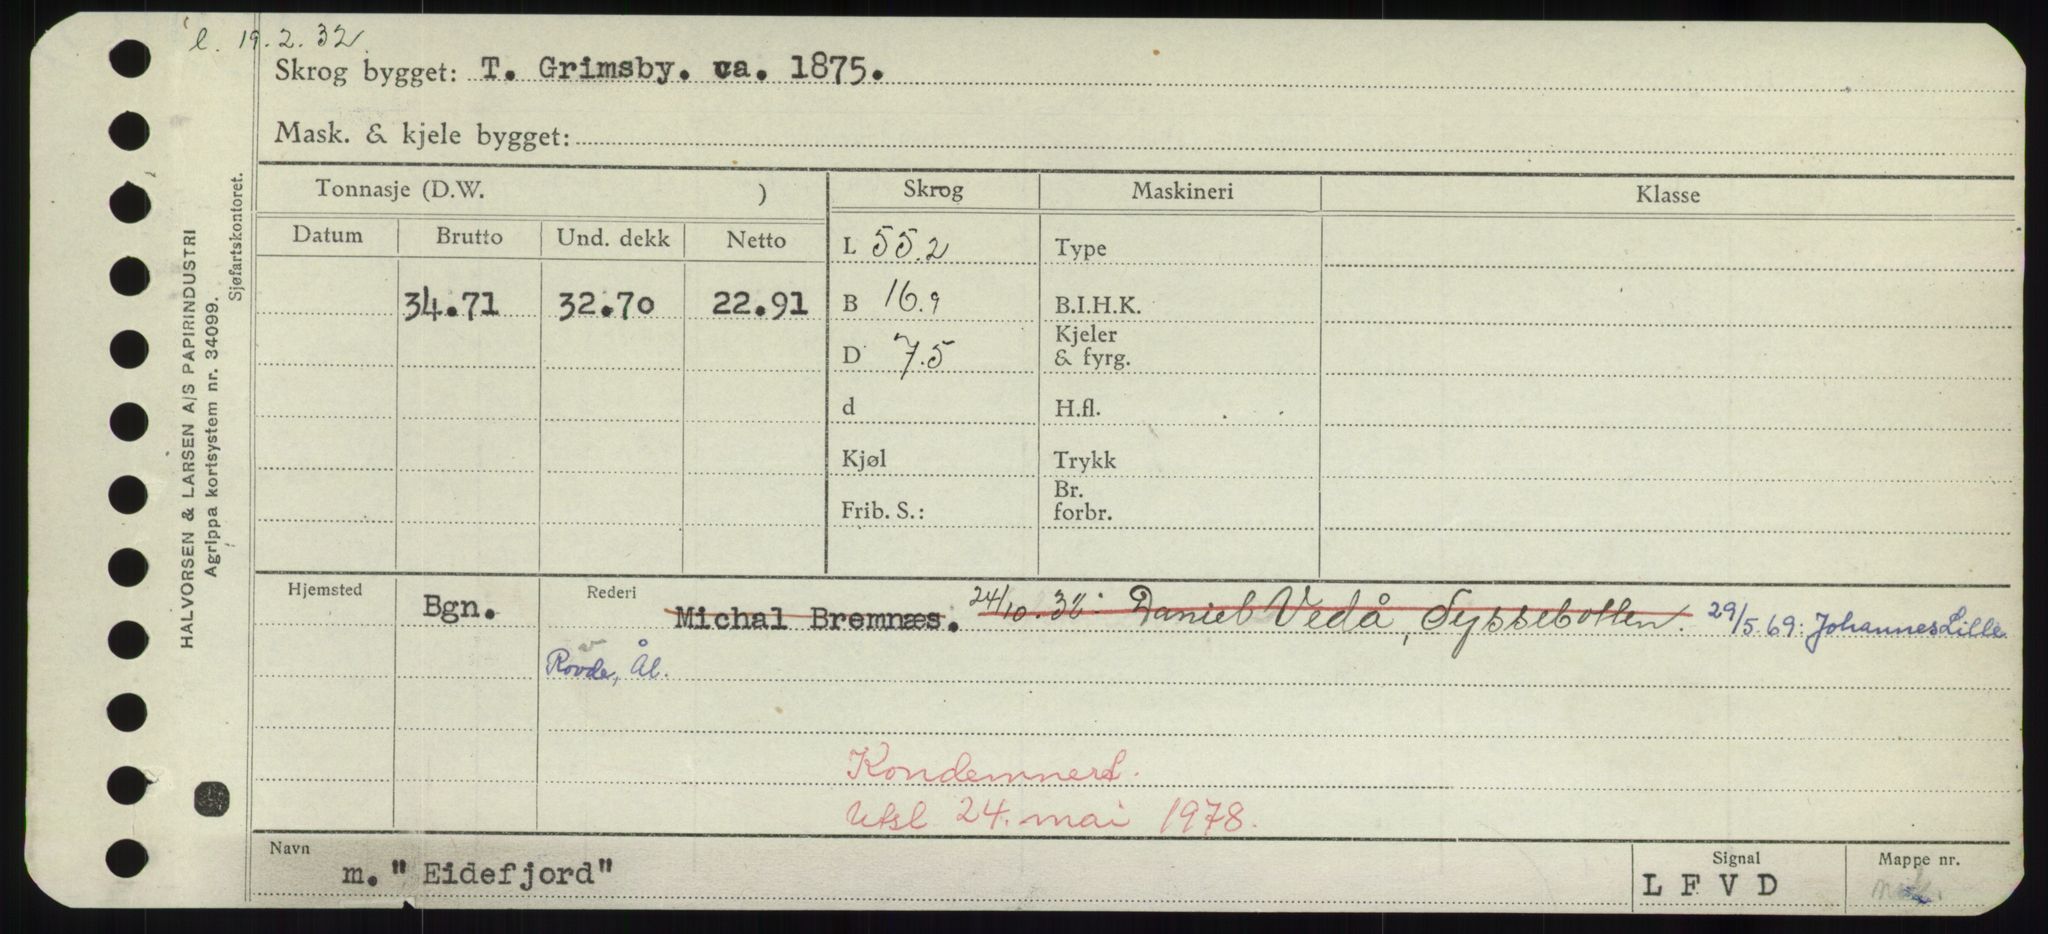 l. 19.2.32
Skrog bygget: T. Grimsby. ca. 1875.
Mask. & kjele bygget:
Tonnasje (D.W. ) Skrog Maskineri Klasse
Datum Brutto Und. dekk Netto L 55.2 Type
34.71 32.70 22.91 B 16.9 B.I.H.K.
D 7.5 Kjeler & fyrg.
d H.fl.
Kjøl Trykk
Frib. S.: Br. forbr.
Hjemsted Bgn. Rederi Michal Bremnæs. 24/10.32: Daniel Vedå, Syssebotten. 29/5.69: Johannes Lille
Rovde, Ål.
Kondemnert.
Utsl 24. mai 1978.
Navn Signal Mappe nr.
m. "Eidefjord" L F V D
HALVORSEN & LARSEN A/S PAPIRINDUSTRI
Agrippa kortsystem nr. 34099.
Sjøfartskontoret.